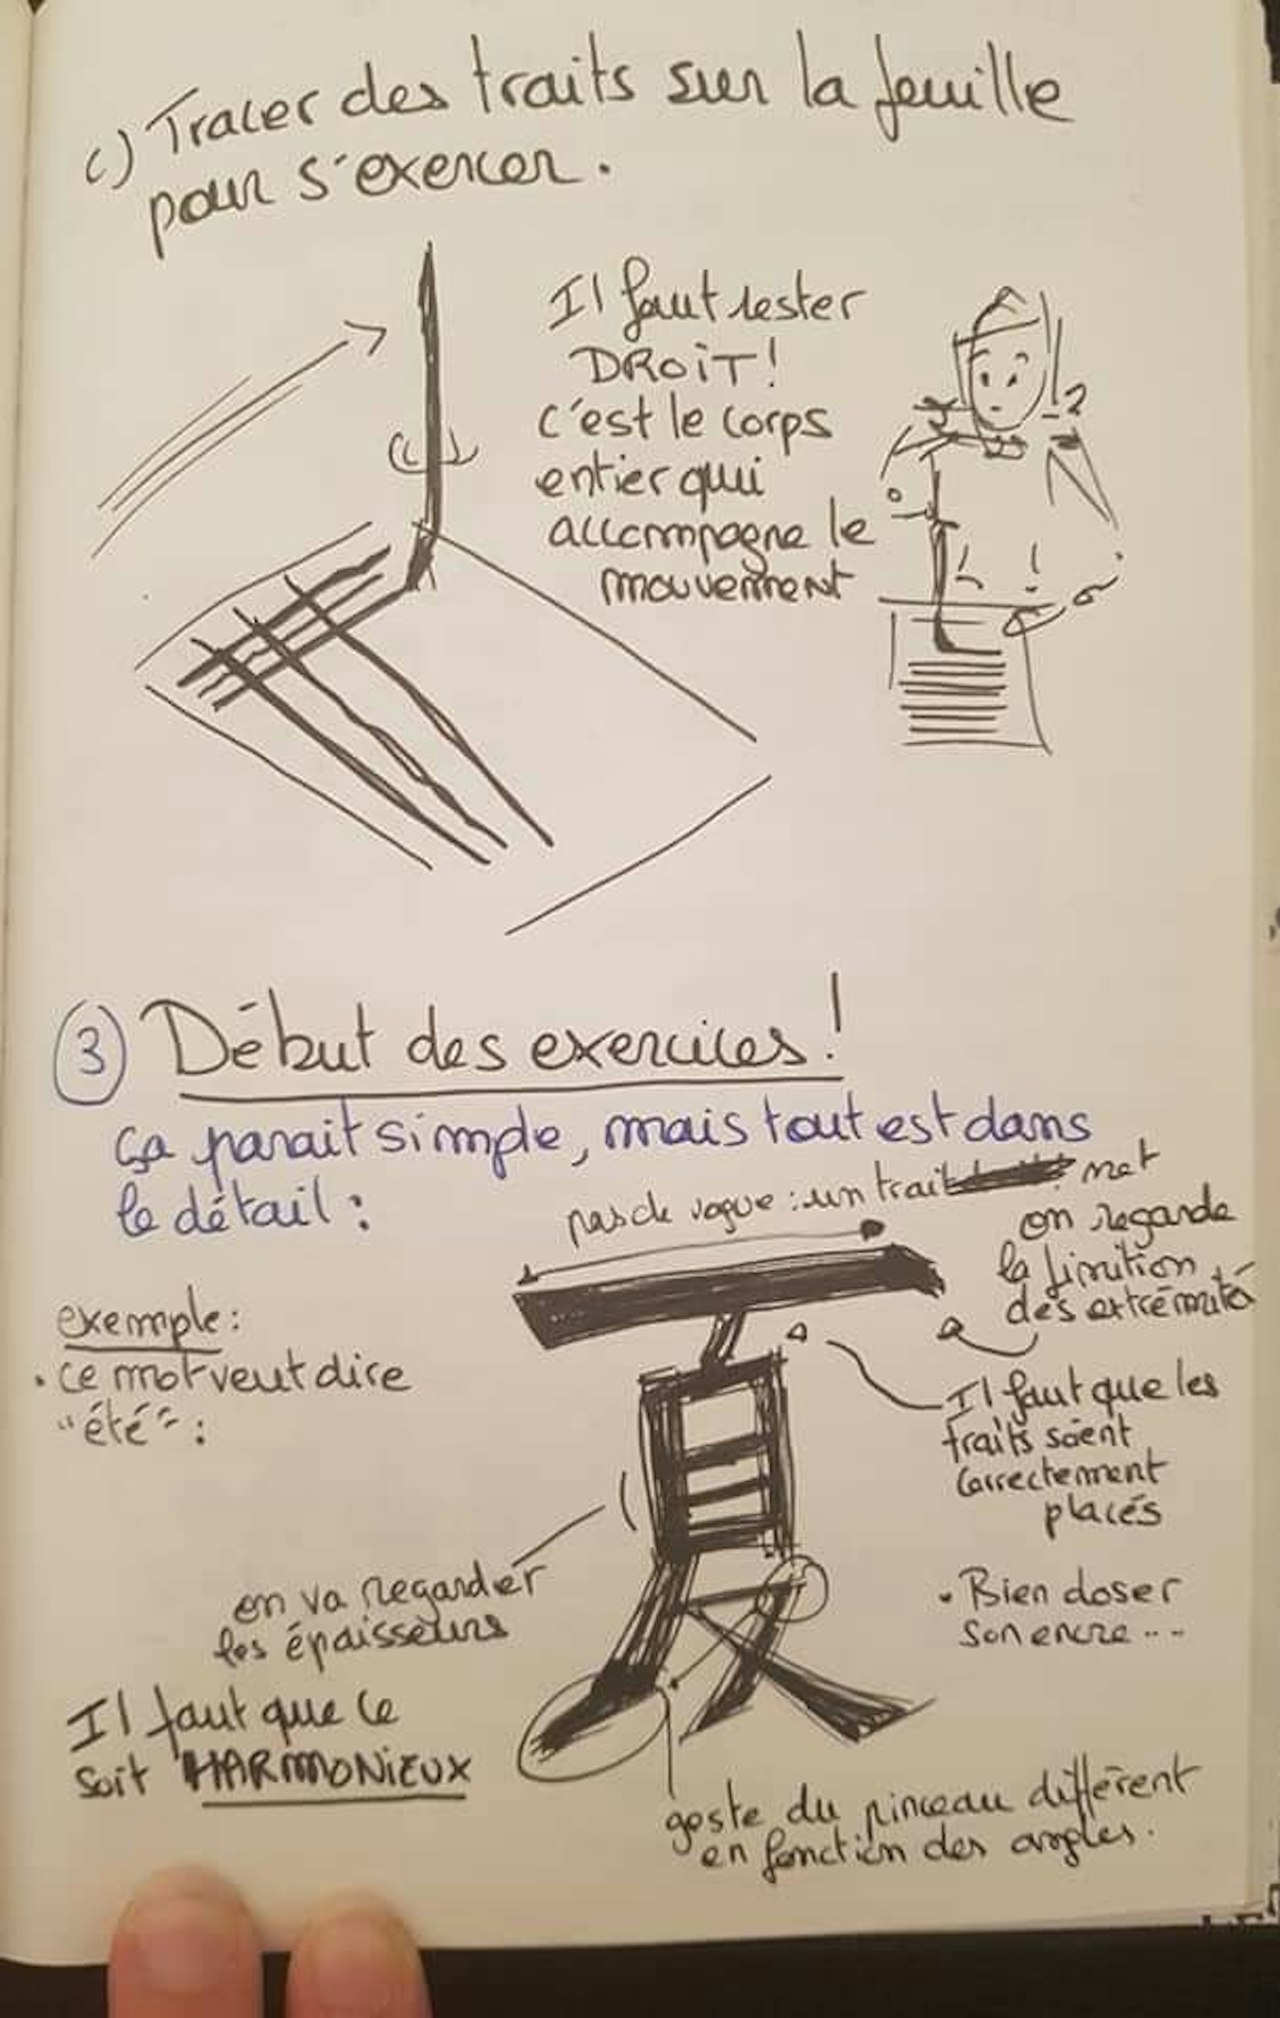 c) Tracer des traits sur la feuille
pour s'exercer.
Il faut rester
DROIT!
c'est le corps
entier qui
accompagne le
mouvement
3 Début des exercices!
ça parait simple, mais tout est dans
le détail :
pas de vague : un trait net
on regarde
la finition
des extrémités
exemple :
. ce mot veut dire
"été" :
夏
Il faut que les
traits soient
correctement
placés
on va regarder
les épaisseurs
. Bien doser
son encre...
Il faut que ce
soit HARMONIEUX
geste du pinceau différent
en fonction des angles.